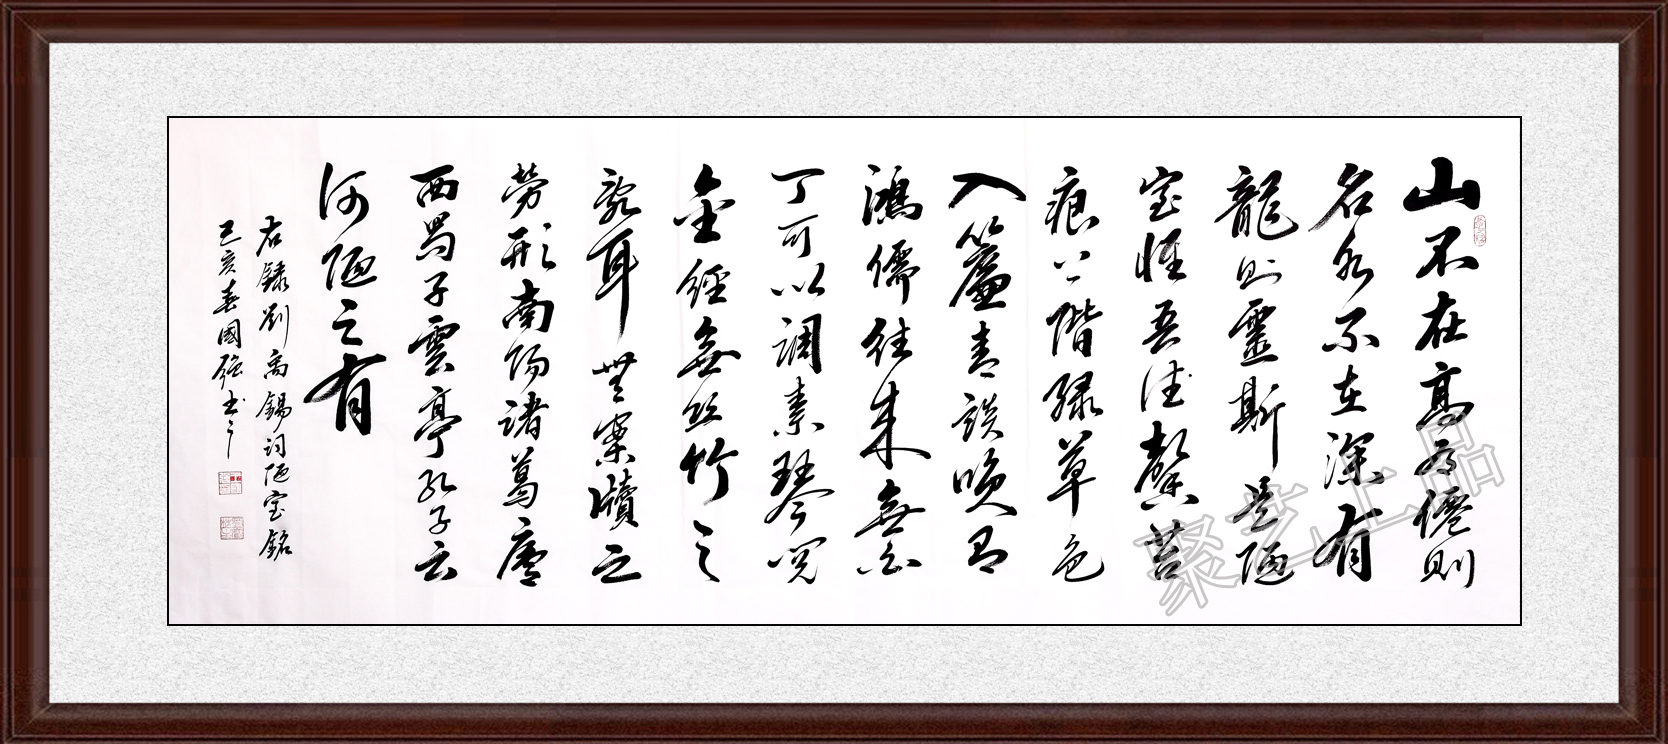 山不在高有僊則
名水不在深有
龍則靈斯是陋
室惟吾德馨苔
痕上階緑草色
入簾青談咲有
鴻儒往來無白
丁可以調素琴閱
金經無絲竹之
亂耳無案牘之
勞形南陽諸葛廬
西蜀子雲亭孔子云
何陋之有
右錄劉禹錫詞陋室銘
己亥春國强书
聚艺上品